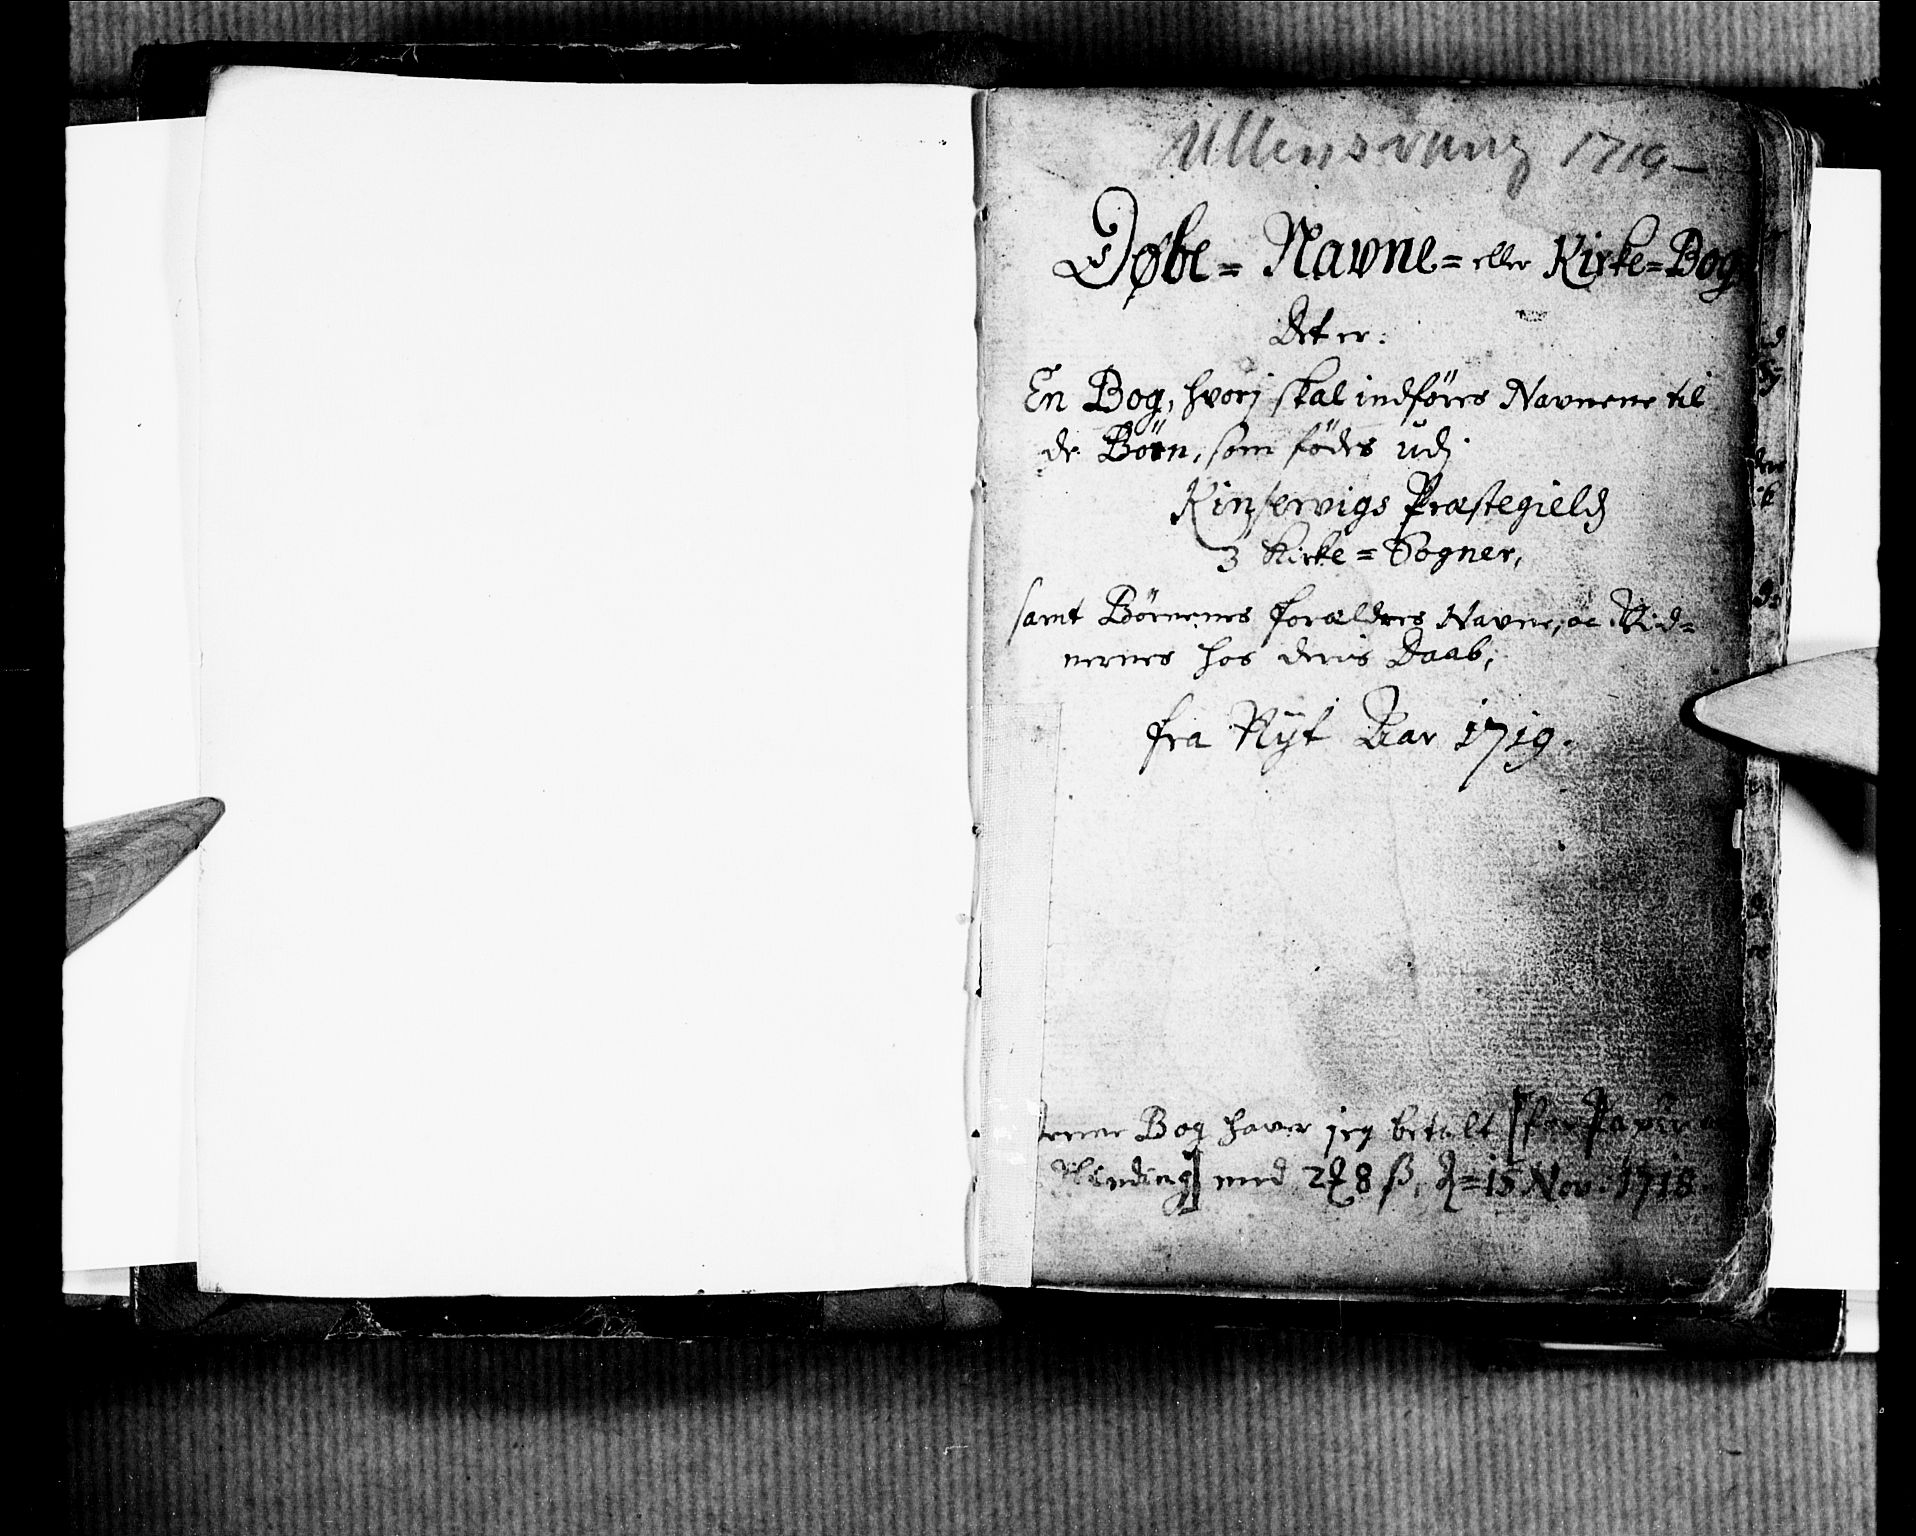 Ullensvang 1719–
Døbe= Navne= eller Kirke=Bog
Det er:
En Bog, hvorj skal indföres Navnene til
de Börn, som födes udj
Kinservigs Præstegield
3 Kirke=Sogner,
samt Börnenes forældres Navne, oc Vid=
nernes hos deris Daab,
fra Nÿt Aar 1719.
Denne Bog haver jeg betalt [for Papir
Binding] med 2 8 ß, d=15 Nov: 1718.